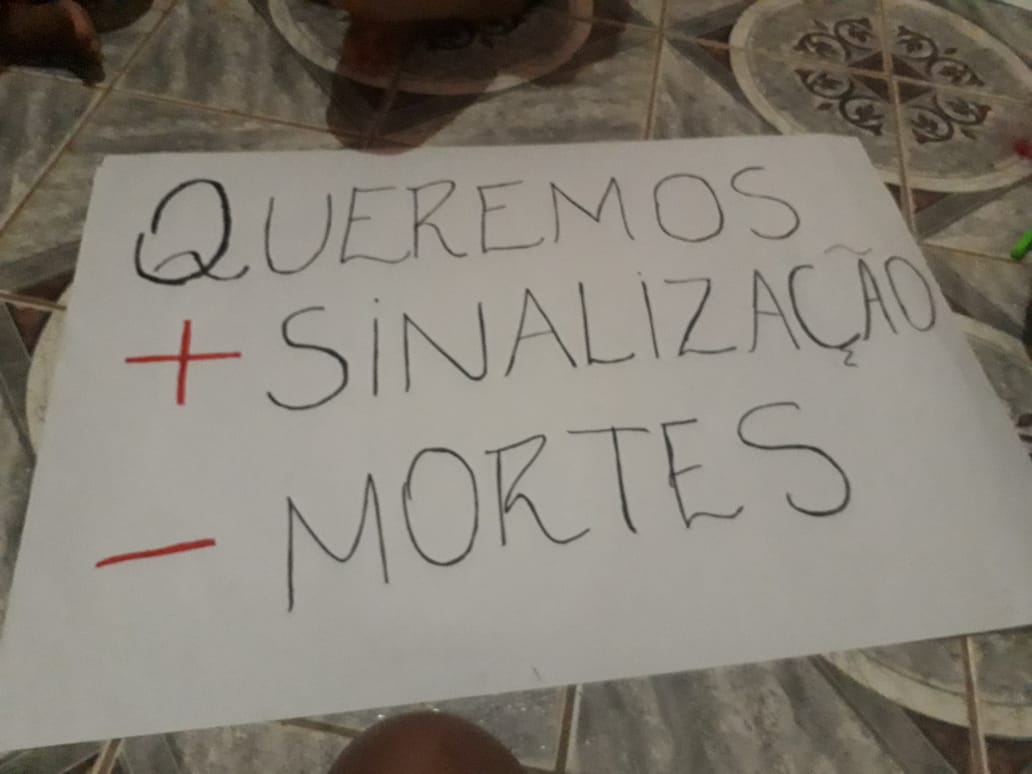 QUEREMOS
+ SiNALiZAÇÃO
- MORTES